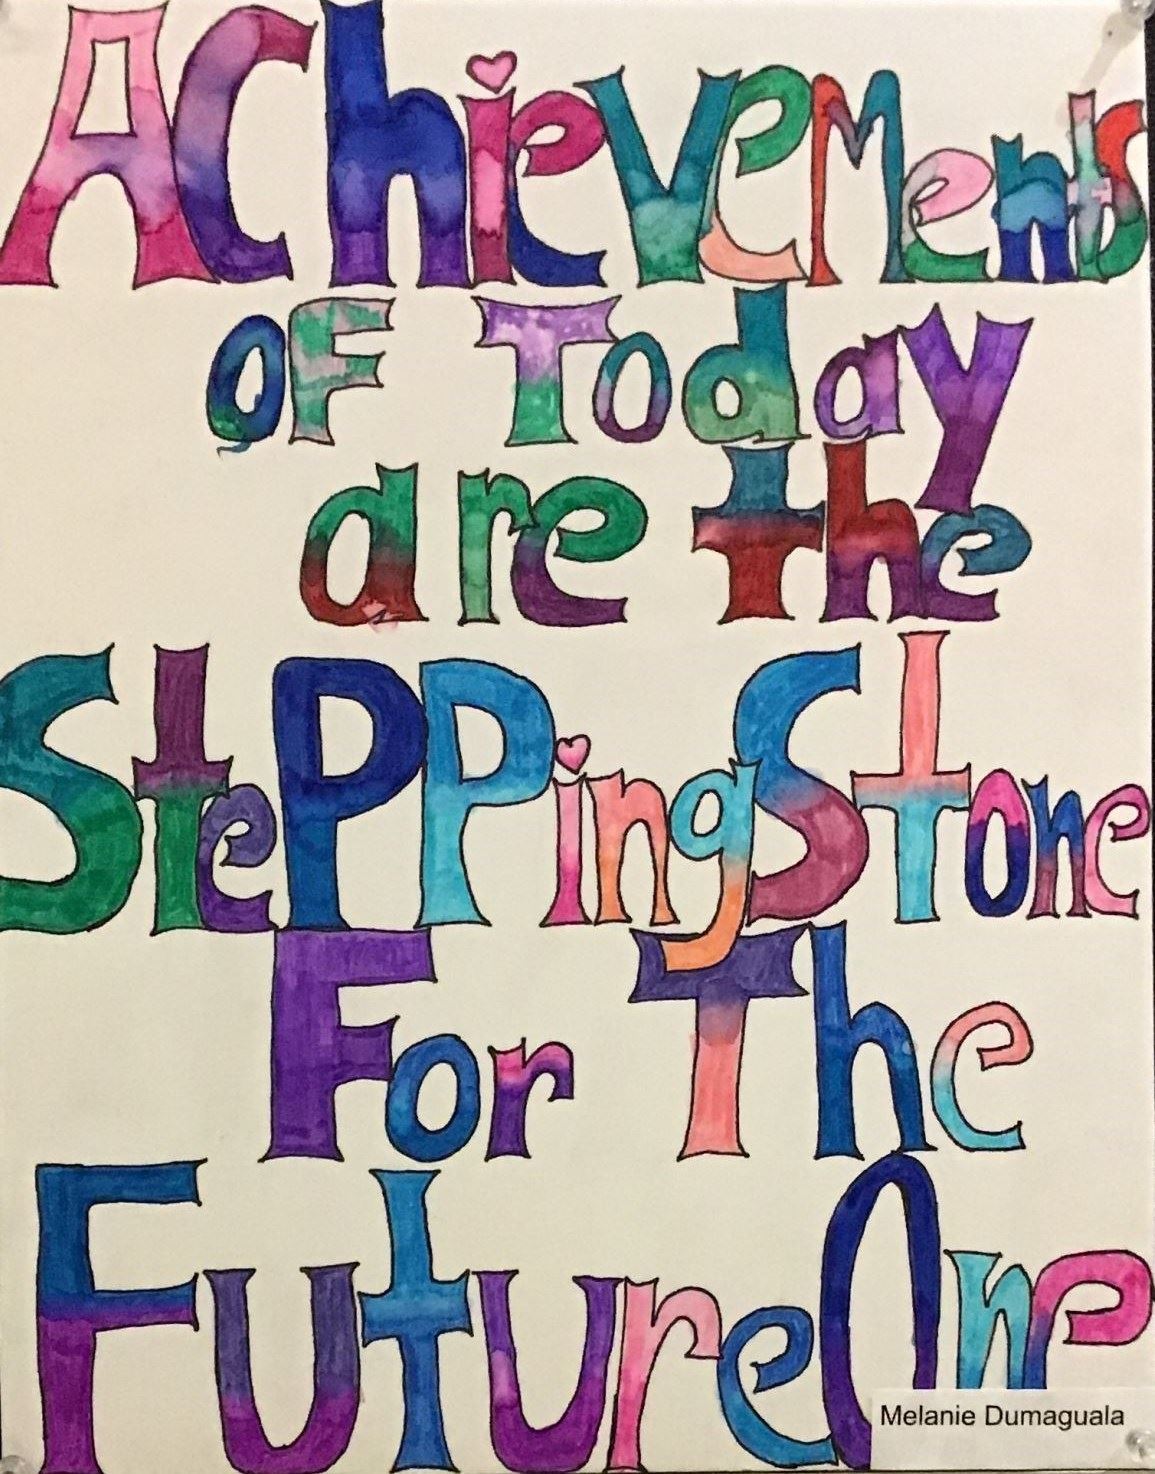 AChieveMents
oF Today
are the
StePPingStone
For The
FutureOne
Melanie Dumaguala